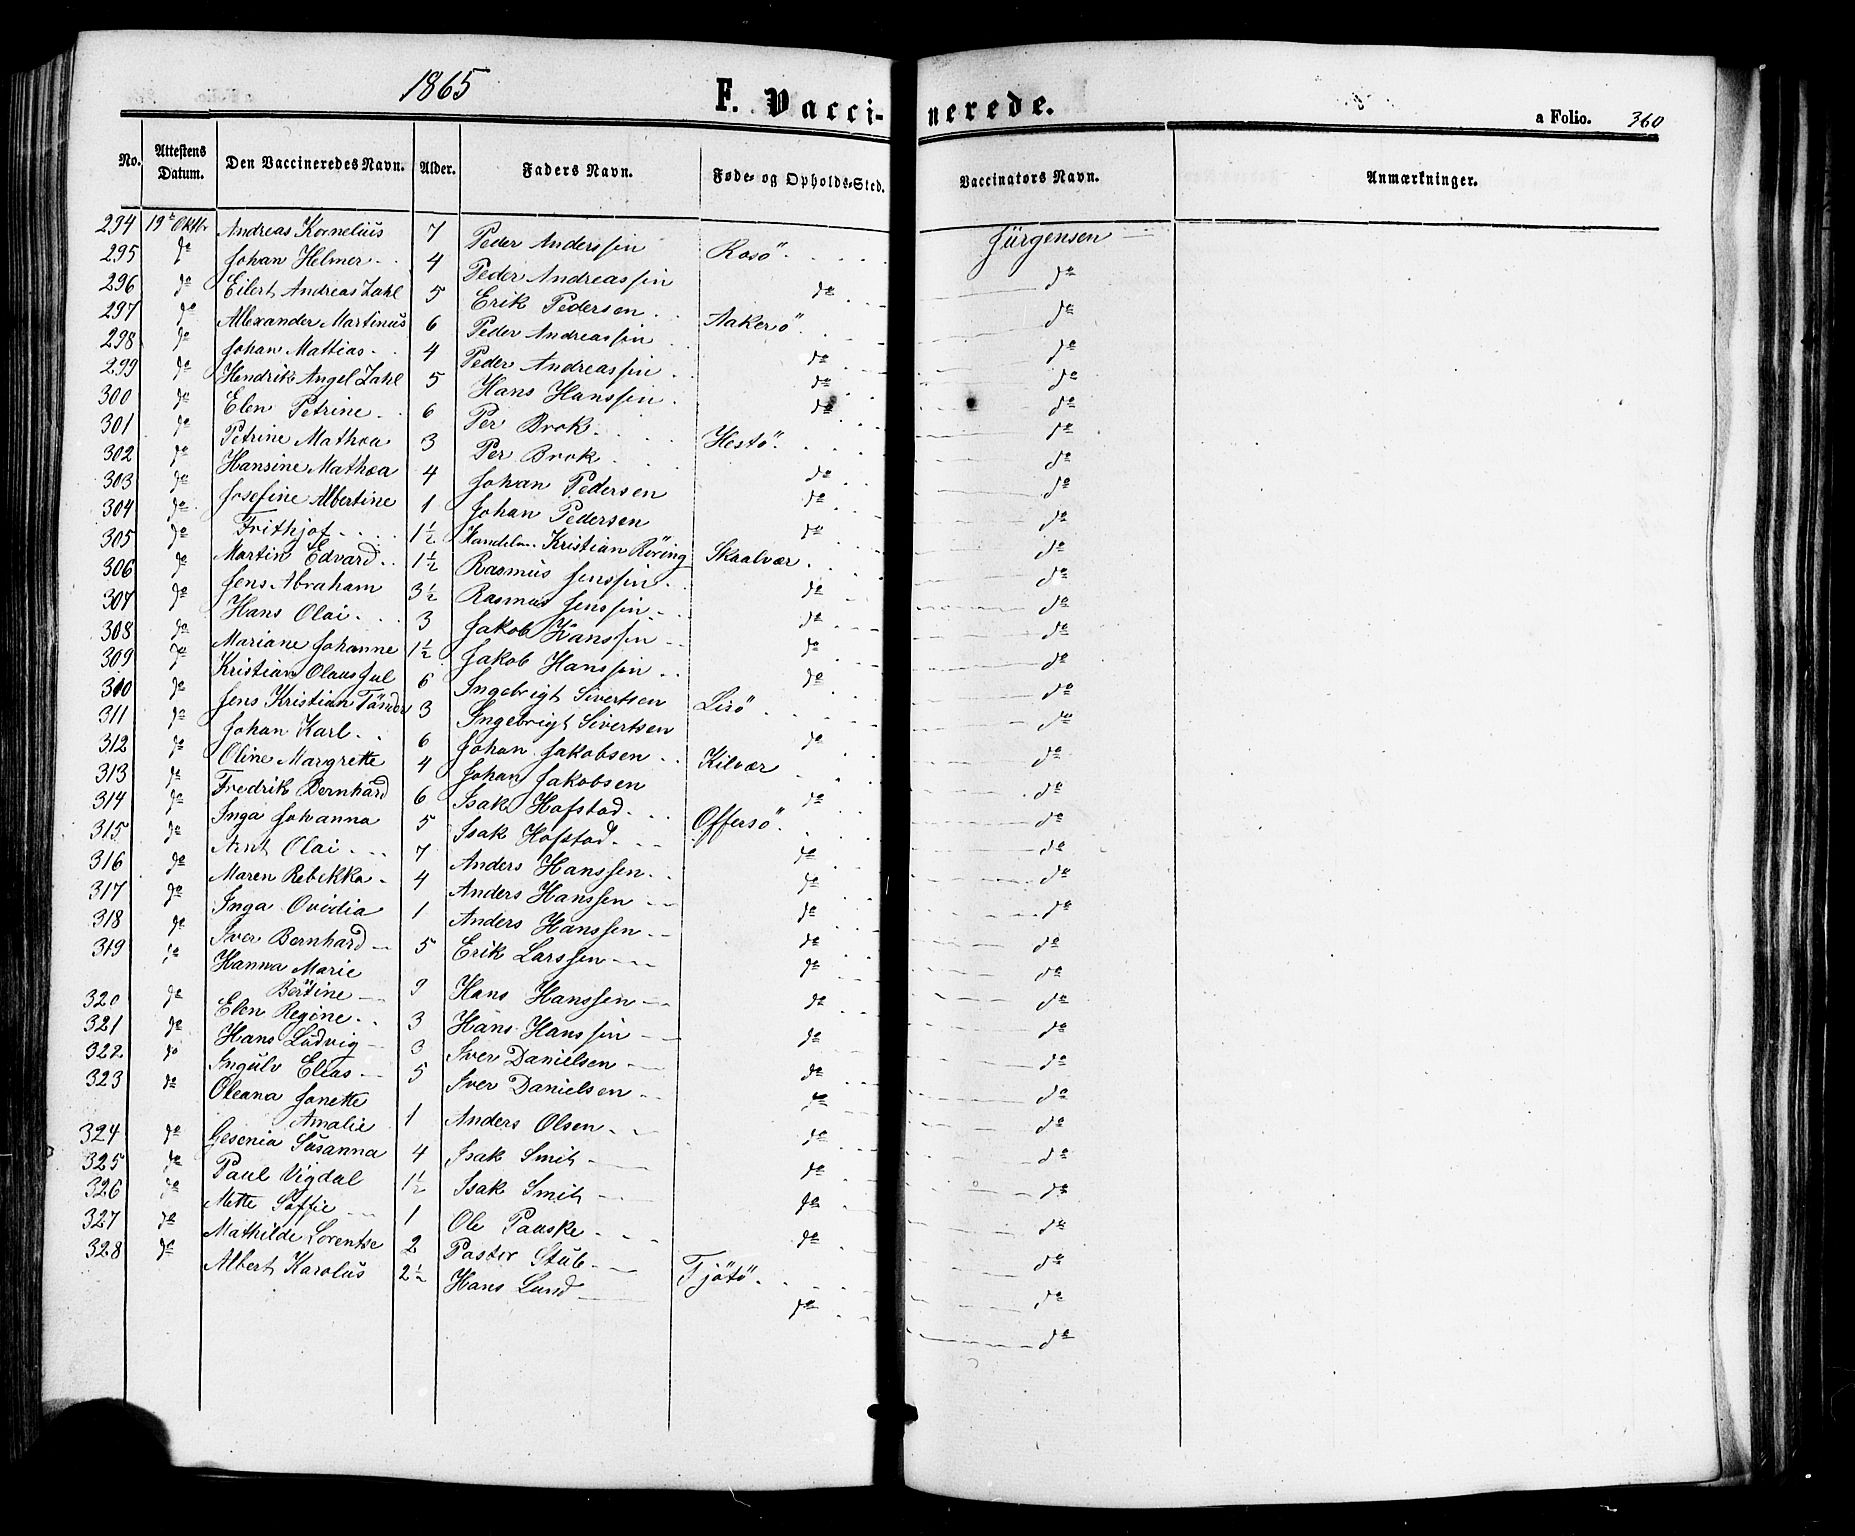 1865
F. Vacci-
nerede.
a Folio. 360
No. Attestens Datum. Den Vaccineredes Navn. Alder. Faders Navn. Føde- og Opholds-Sted. Vaccinators Navn. Anmærkninger.
294 19de Oktbr Andreas Kornelius 7 Peder Anderssen Rosö. Jürgensen
295 do Johan Helmer 4 Peder Andreassen do do
296 do Eilert Andreas Zahl 5 Erik Pedersen Aakerö. do
297 do Allexander Martinus 6 Peder Andreassen do do
298 do Johan Mattias 4 Peder Andreassen do do
299 do Hendrik Angel Zahl 5 Hans Hanssen do do
300 do Elen Petrine 6 Per Brok Hestö. do
301 do Petrine Mathea 3 Per Brok do do
302 do Hansine Mathea 4 Johan Pedersen do do
303 do Josefine Albertine 1 Johan Pedersen do do
304 do Frithjof 1½ Handelsm. Kristian Röring Skaalvær do
305 do Martin Edvard 1½ Rasmus Jenssen do do
306 do Jens Abraham 3½ Rasmus Jenssen do do
307 do Hans Olai 3 Jakob Hanssen do do
308 do Mariane Johanne 1½ Jakob Hanssen do do
309 do Kristian Olaus Jul 6 Ingebrigt Sivertsen Lisö do
310 do Jens Kristian 3 Ingebrigt Sivertsen do do
311 do Johan Karl 6 Johan Jakobsen Kilvær do
312 do Oline Margrette 4 Johan Jakobsen do do
313 do Fredrik Bernhard 6 Isak Hofstad Offersö. do
314 do Inga Johanna 5 Isak Hofstad do do
315 do Arnt Olai 7 Anders Hanssen do do
316 do Maren Rebekka 4 Anders Hanssen do do
317 do Inga Ovidia 1 Anders Hanssen do do
318 do Iver Bernhard 5 Erik Larssen do do
319 do Hanna Marie
Bertine 9 Hans Hanssen do do
320 do Elen Regine 3 Hans Hanssen do do
321 do Hans Ludvig 3 Iver Danielsen do do
322 do Ingulv Eleas 5 Iver Danielsen do do
323 do Oleana Janette
Amalie 1 Anders Olsen do do
324 do Gesenia Susanna 4 Isak Smit do do
325 do Paul Vigdal 1½ Isak Smit do do
326 do Mette Soffie 1 Ole Pauske do do
327 do Mathilde Lorentse 2 Pastor Stub Tjötö. do
328 do Albert Karolus 2½ Hans Lund do do